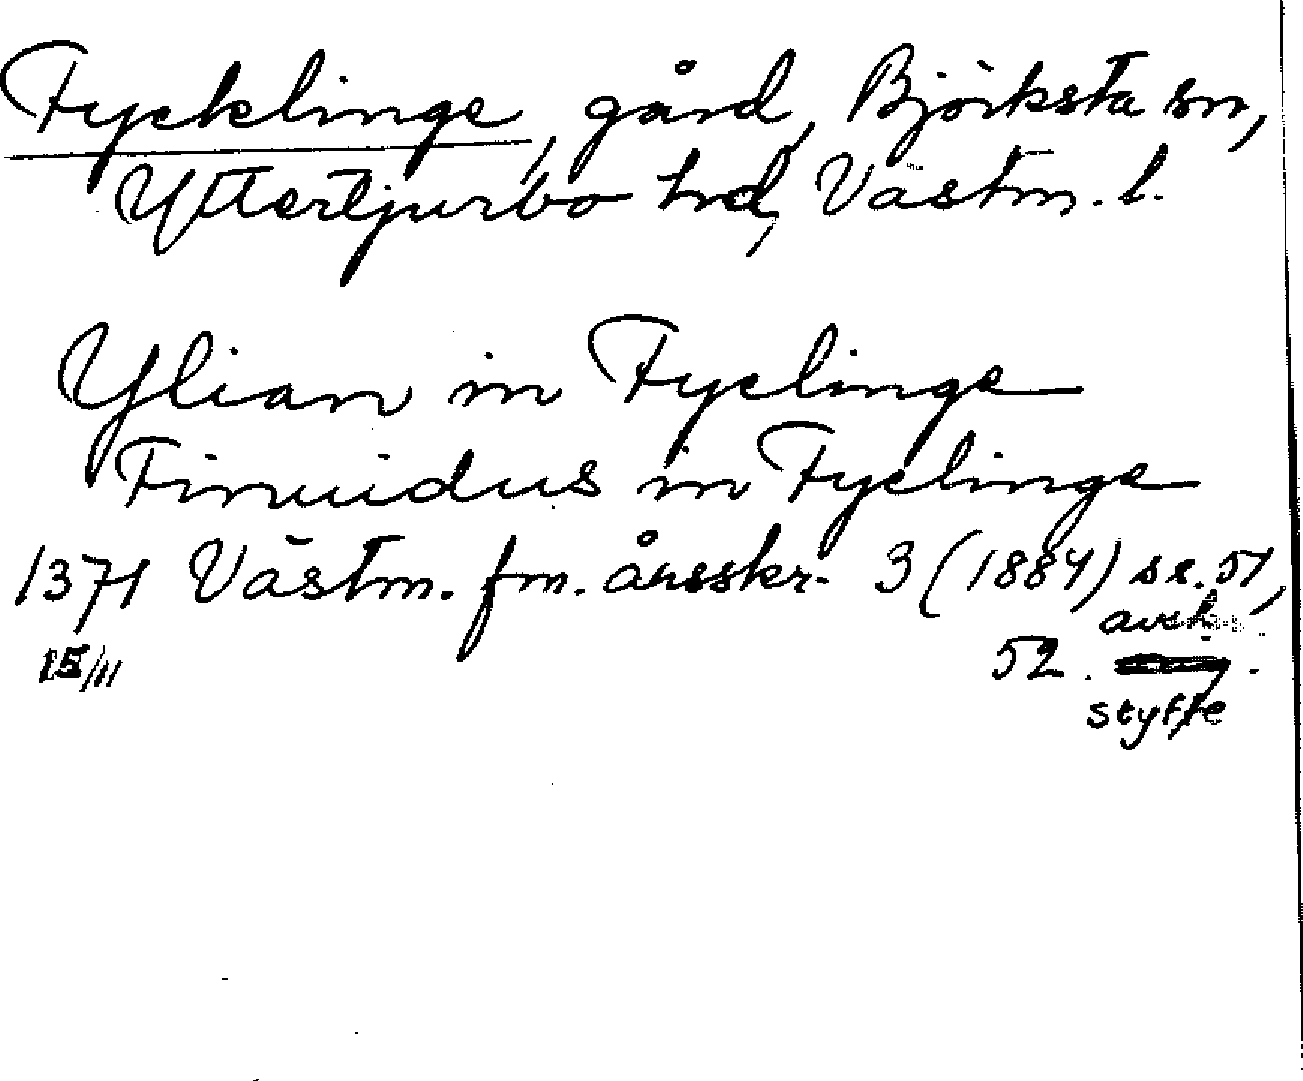 Fycklinge, gård, Björksta sn,
Yttertjurbo hd, Västm. l.
Ylian in Fyclinge
Finuidus in Fyclinge
1371 Västm. fm. årsskr. 3 (1884) se. 51,
15/11 52. avskr.
styffe